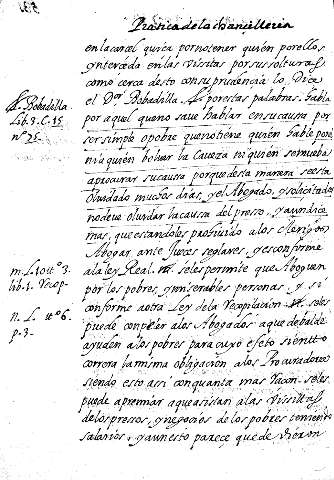 Practica de la chancilleria
en la carcel quiça por no tener quien por ellos
ynterceda en las visitas por su soltura
como cerca desto con su prudencia lo Dice
el Dor Bobadilla por estas palabras. habla
por aquel que no save hablar en su causa por
ser simple o pobre que no tiene quien hable por
ni a quien bolvar la Caveza ni quien se mueba
a procurar su causa porque desta manera se esta
olvidado muchos dias, y el Abogado, y solicitador
no deve olvidar la causa del presso, y aun dice
mas, que estandoles prohivido a los Clerigos
Abogar ante Jueces seglares, y es conforme
a la ley Real se les permite que Aboguen
por los pobres y miserables personas y si
conforme a otra Ley de la Recopilacion se les
puede compeler a los Abogados a que de balde
ayuden a los pobres para cuyo efeto siento
correra la misma obligacion a los Procuradores
siendo esto assi con quanta mas racon se les
puede apremiar a que asistan a las Vissitas
de los pressos, y negocios de los pobres teniendo
salarios, y aun esto parece que dieron
Bobadilla
Lib. 3. C. 15
nº 25
m. L. 10. tto 3.
lib. 1. Recop
n. L. tto 6.
p. 3.